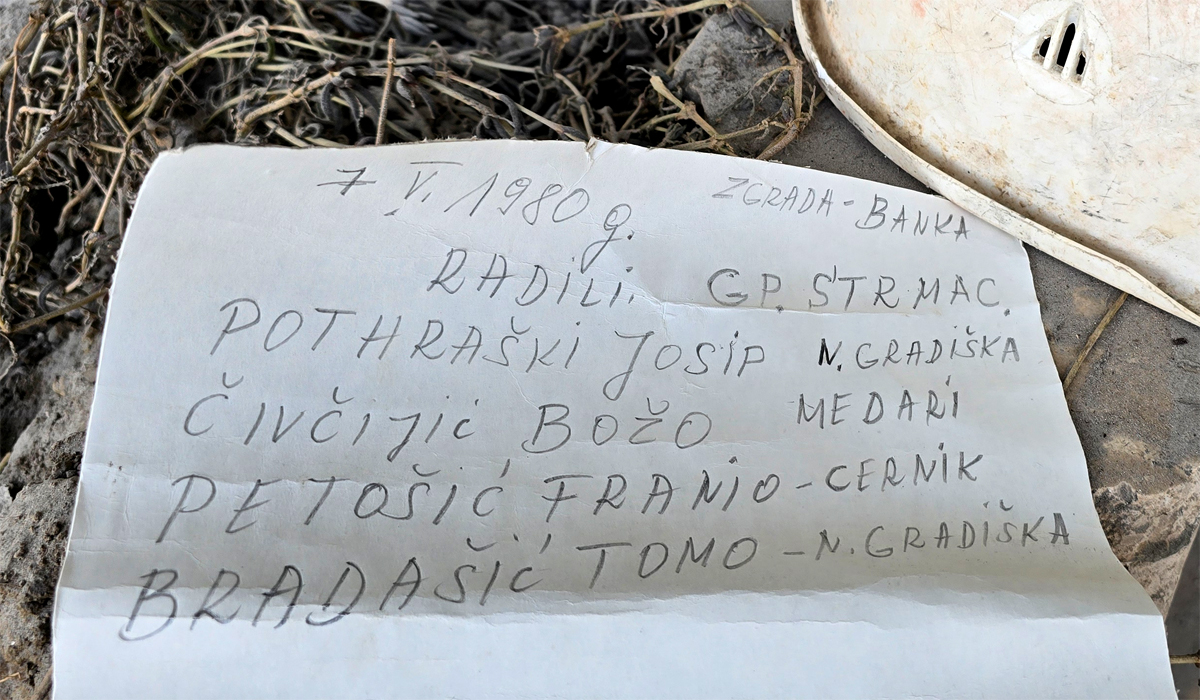 7 V. 1980 g. ZGRADA - BANKA
RADILI: GP. STRMAC.
POTHRAŠKI JOSIP N. GRADIŠKA
ČIVČIJIĆ BOŽO MEDARI
PETOŠIĆ FRANJO - CERNIK
BRADAŠIĆ TOMO - N. GRADIŠKA